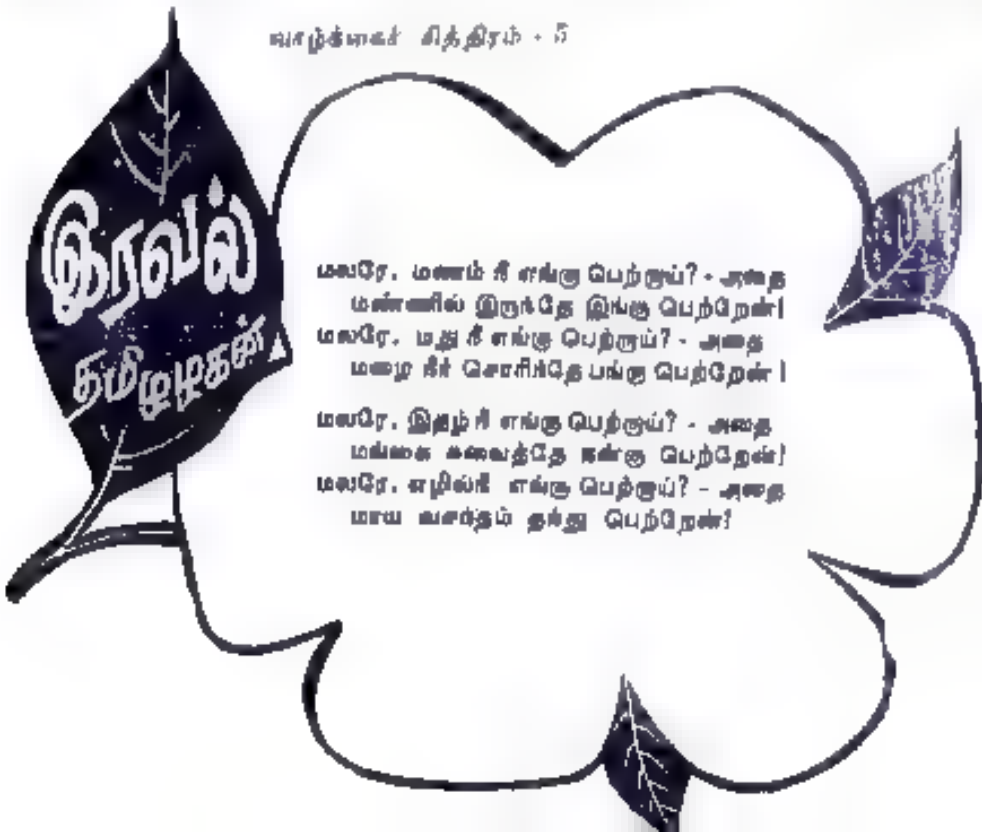 வாழ்க்கைச் சித்திரம் - 5
இரவல்
தமிழழகன்
மலரே, மணம் நீ எங்கு பெற்றாய்? - அதை
மண்ணில் இருந்தே இங்கு பெற்றேன்!
மலரே, மது நீ எங்கு பெற்றாய்? - அதை
மழை நீர் சொரிந்தே பங்கு பெற்றேன்!
மலரே, இதழ் நீ எங்கு பெற்றாய்? - அதை
மங்கை சுவைத்தே நன்கு பெற்றேன்!
மலரே, எழில்நீ எங்கு பெற்றாய்? - அதை
மாய வசந்தம் தந்து பெற்றேன்!